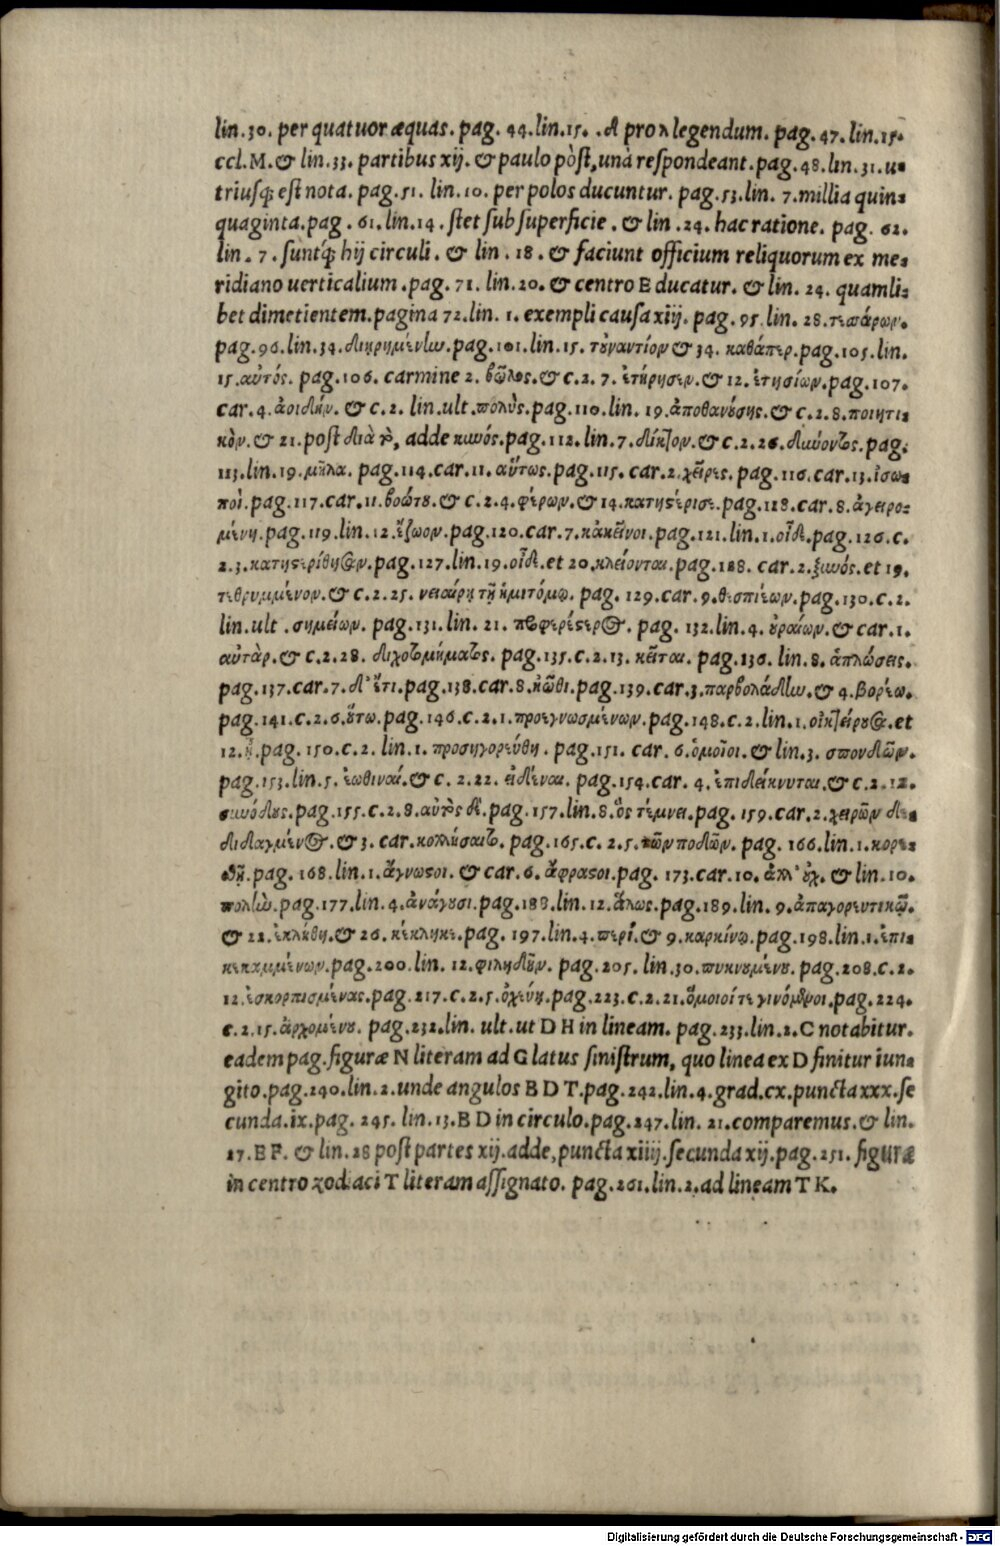 lin.30. per quatuor æquas. pag. 44. lin.15. . A pro λ legendum. pag. 47. lin.15.
ccl. M. & lin. 33. partibus xij. & paulo pòst, unà respondeant. pag. 48. lin. 31. u-
triusq; est nota. pag. 51. lin. 10. per polos ducuntur. pag. 53. lin. 7. millia quin-
quaginta. pag. 61. lin. 14. stet sub superficie. & lin. 24. hac ratione. pag. 62.
lin. 7. suntq́; hij circuli. & lin. 18. & faciunt officium reliquorum ex me-
ridiano uerticalium. pag. 71. lin. 20. & centro E ducatur. & lin. 24. quamli-
bet dimetientem. pagina 72. lin. 1. exempli causa xiij. pag. 95. lin. 28. τεσσάρων.
pag. 96. lin. 34. διῃρημένην. pag. 101. lin. 15. τοὐναντίον & 34. καθάπερ. pag. 105. lin.
15. αὐτός. pag. 106. carmine 2. βῶλος. & c. 2. 7. ἐτήρησεν. & 12. ἐτησίων. pag. 107.
car. 4. ἀοιδὴν. & c. 2. lin. ult. πολὺς. pag. 110. lin. 19. ἀποθανούσης. & c. 2. 8. ποιητι-
κὸν. & 21. post διὰ τὸ, adde κοινός. pag. 112. lin. 7. δίκτον. & c. 2. 26. δικύοντος. pag.
113. lin. 19. μῆλα. pag. 114. car. 11. αὔτως. pag. 115. car. 2. χεῖρες. pag. 116. car. 13. ἰσω-
ποὶ. pag. 117. car. 11. βοώτου. & c. 2. 4. φέρων. & 14. κατηστέρισε. pag. 118. car. 8. ἀγειρο-
μένη. pag. 119. lin. 12. ἵζωον. pag. 120. car. 7. κἀκεῖνοι. pag. 121. lin. 1. οἶδε. pag. 126. c.
2. 3. κατηστερίθησαν. pag. 127. lin. 19. οἶδε. et 20. κλείονται. pag. 128. car. 2. ξυνός. et 19.
τεθρυμμένον. & c. 2. 25. νειαίρῃ τῇ ἡμιτόμῳ. pag. 129. car. 9. θεσπίεων. pag. 130. c. 2.
lin. ult. σημείων. pag. 131. lin. 21. προφερέστερος. pag. 132. lin. 4. οὐραίων. & car. 1.
αὐτὰρ. & c. 2. 28. διχοτομήματος. pag. 135. c. 2. 13. κεῖται. pag. 136. lin. 8. ἁπλώσεις.
pag. 137. car. 7. δ' ἔτι. pag. 138. car. 8. κῶθι. pag. 139. car. 3. παρβολάδην. & 4. βορέω.
pag. 141. c. 2. 6. οὕτω. pag. 146. c. 2. 1. προεγνωσμένων. pag. 148. c. 2. lin. 1. οἰκτείρουσα. et
12. ᾗ. pag. 150. c. 2. lin. 1. προσηγορεύθη. pag. 151. car. 6. ὁμοῖοι. & lin. 3. σπονδῶν.
pag. 153. lin. 5. ἑωθιναί. & c. 2. 22. εἰδέναι. pag. 154. car. 4. ἐπιδείκνυται. & c. 2. 12.
συνόδους. pag. 155. c. 2. 8. αὐτὸς δὲ. pag. 157. lin. 8. ὃς τέμνει. pag. 159. car. 2. χειρῶν δε-
διδαγμένος. & 3. car. κολλήσαιτο. pag. 165. c. 2. 5. τῶν ποδῶν. pag. 166. lin. 1. κορε-
σθῇ. pag. 168. lin. 1. ἄγνωστοι. & car. 6. ἄφραστοι. pag. 173. car. 10. ἀλλ' οὐχ. & lin. 10.
πολλὼ. pag. 177. lin. 4. ἀνάγουσι. pag. 188. lin. 12. ἅλως. pag. 189. lin. 9. ἀπαγορευτικῷ.
& 22. ἐκλήθη. & 26. κέκληκε. pag. 197. lin. 4. περί. & 9. καρκίνῳ. pag. 198. lin. 1. ἐπι-
κεκαμμένων. pag. 200. lin. 12. φιληδοῦν. pag. 205. lin. 30. πυκνουμένου. pag. 208. c. 2.
12. ἐσκορπισμένας. pag. 217. c. 2. 5. ὀχεύῃ. pag. 223. c. 2. 21. ὅμοιοί τε γινόμενοι. pag. 224.
c. 2. 15. ἀρχομένου. pag. 232. lin. ult. ut D H in lineam. pag. 233. lin. 2. C notabitur.
eadem pag. figuræ N literam ad G latus sinistrum, quo linea ex D finitur iun-
gito. pag. 240. lin. 2. unde angulos B D T. pag. 242. lin. 4. grad. cx. puncta xxx. se
cunda. ix. pag. 245. lin. 13. B D in circulo. pag. 247. lin. 21. comparemus. & lin.
27. B F. & lin. 28 post partes xij. adde, puncta xiiij. secunda xij. pag. 251. figuræ
in centro zodiaci T literam assignato. pag. 261. lin. 2. ad lineam T K.
Digitalisierung gefördert durch die Deutsche Forschungsgemeinschaft - DFG